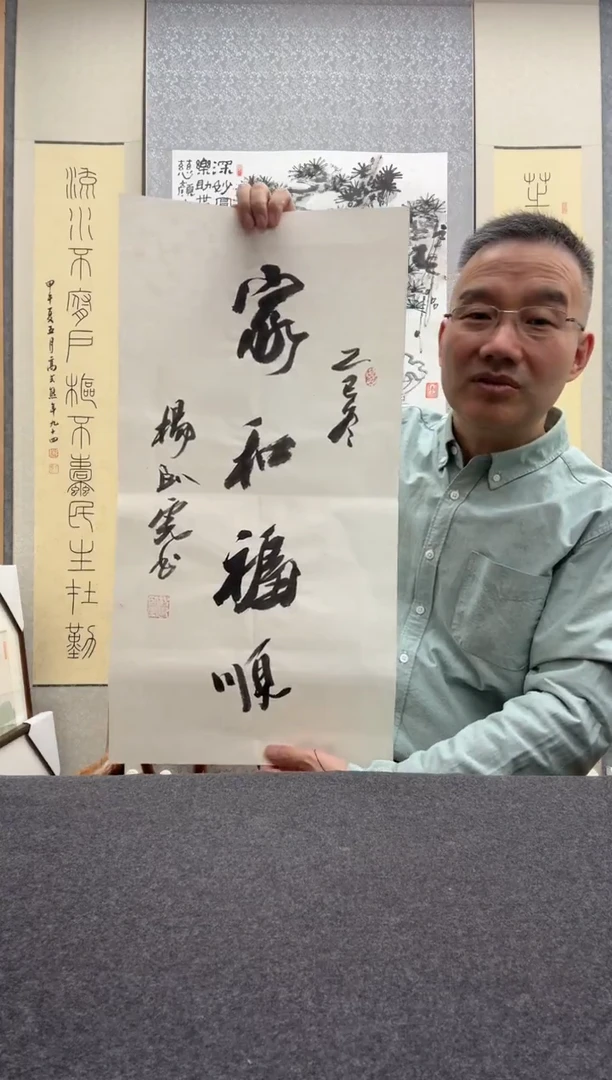 深妙圓
樂助
慈顏
乙巳冬
家和福順
楊
书
流水不腐戶樞不蠹民生在勤
甲午夏五月高式熊年九十四